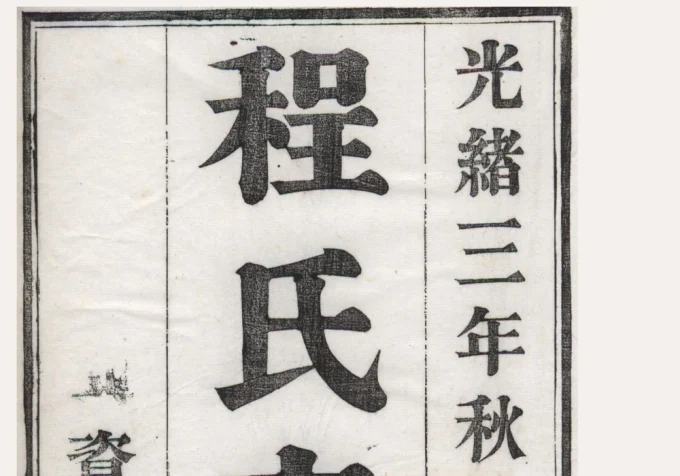 光緒三年秋
程氏
資